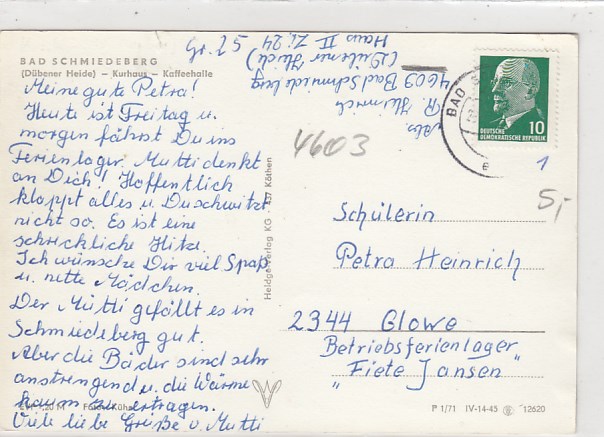 BAD SCHMIEDEBERG
(Dübener Heide) – Kurhaus – Kaffeehalle
Meine gute Petra!
Heute ist Freitag u.
morgen fährst Du ins
Ferienlager. Mutti denkt
an Dich! Hoffentlich
klappt alles u. Du schwitzt
nicht so. Es ist eine
schreckliche Hitze.
Ich wünsche Dir viel Spaß
u. nette Mädchen.
Der Mutti gefällt es in
Schmiedeberg gut.
Aber die Bäder sind sehr
anstrengend u. die Wärme
kaum zu ertragen.
Viele liebe Grüße v. Mutti
Abs.
R. Heinrich
4603 Bad Schmiedeberg
(Dübener Heide)
Haus II Zi. 24
Gr. 25
4603
Heldge-Verlag KG · 437 Köthen
BAD
DEUTSCHE
DEMOKRATISCHE REPUBLIK
10
1
5,-
Schülerin
Petra Heinrich
2344 Glowe
Betriebsferienlager
"Fiete Jansen"
P 1/71 IV-14-45 12620